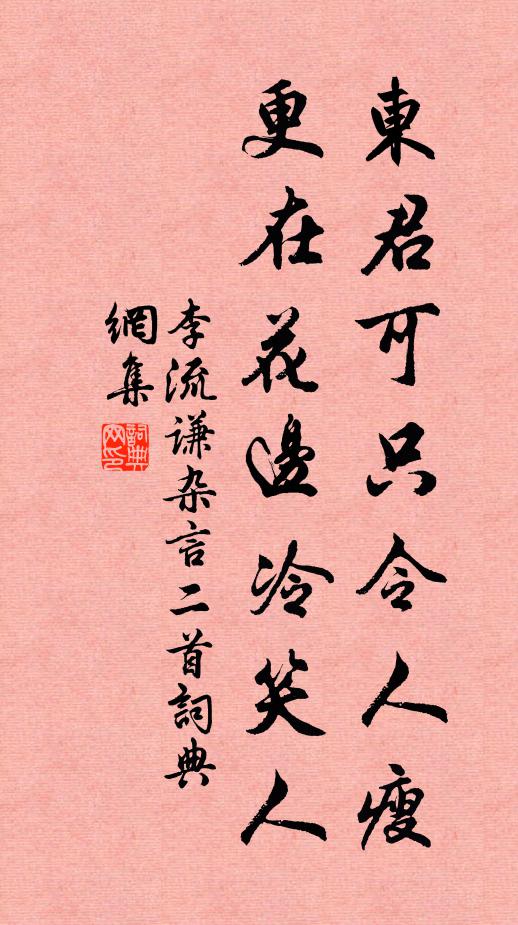 東君可只令人瘦
更在花邊冷笑人
李流谦杂言二首詞典
網集
詞典網印